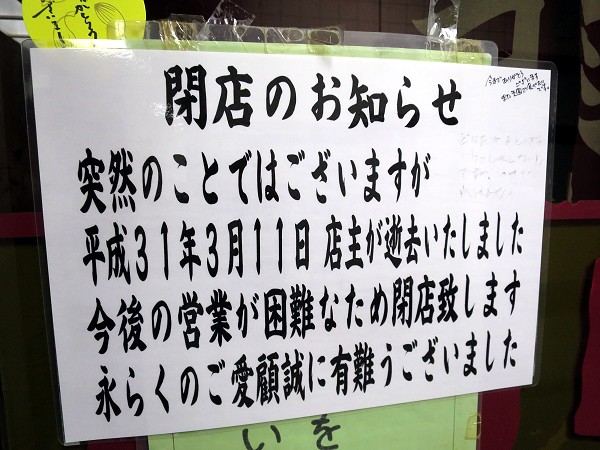 閉店のお知らせ
突然のことではございますが
平成31年3月11日 店主が逝去いたしました
今後の営業が困難なため閉店致します
永らくのご愛顧誠に有難うございました
今までありがとう
ございます
いを